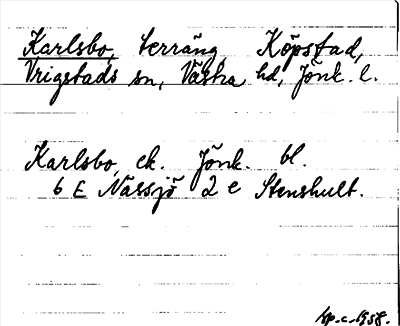 Karlsbo, terräng, Köpstad,
Vrigstads sn, Västra hd, Jönk. l.
Karlsbo, ek. Jönk. bl.
6 E Nässjö 2 e Stenshult.
Hp.c.1958.